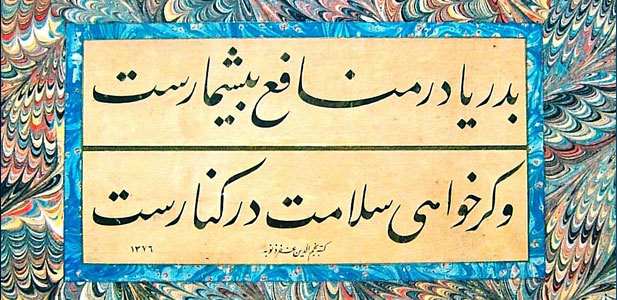 بدریا در منافع بیشمارست
وکر خواهی سلامت در کنارست
کتبه نجم الدین غفر ذنوبه
۱۳۷۶